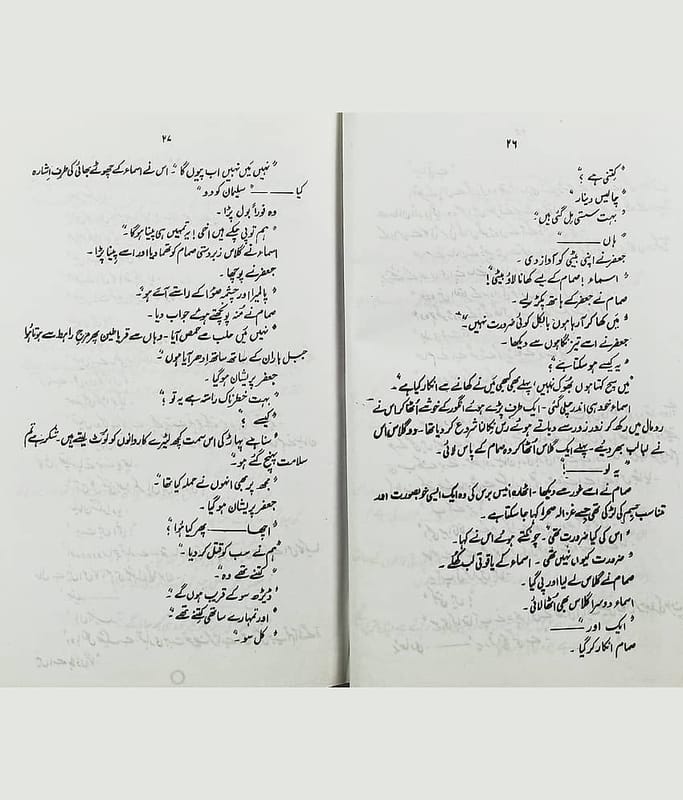 ۲۶
"کتنی ہے ؟"
چالیس دینار"
"بہت سستی مل گئی ہیں"
"ہاں ———"
جعفر نے اپنی بیٹی کو آواز دی۔
"اسماء! صمام کے لیے کھانا لاؤ بیٹی!
صمام نے جعفر کے ہاتھ پکڑ لیے۔
"میں کھا کر آ رہا ہوں بالکل کوئی ضرورت نہیں"۔
جعفر نے اسے تیز نگاہوں سے دیکھا۔
"یہ کیسے ہو سکتا ہے"
"میں سچ کہتا ہوں بھوک نہیں، پہلے بھی کبھی میں نے کھانے سے انکار کیا ہے"۔
اسماء خود ہی اندر چلی گئی۔ ایک طرف پڑے ہوئے انگور کے خوشے اُٹھا کر اس نے
رومال میں رکھ کر زور زور سے دباتے ہوئے رس نکالنا شروع کر دیا تھا۔ دو گلاس اس
نے لبالب بھر دیے۔ پہلے ایک گلاس اُٹھا کر وہ صمام کے پاس لائی۔
"یہ لو ———!"
صمام نے اسے غور سے دیکھا۔ اٹھارہ انیس برس کی وہ ایک ایسی خوبصورت اور
تناسب جسم کی لڑکی تھی جسے غزالہ صحرا کہا جا سکتا ہے۔
"اس کی کیا ضرورت تھی"۔ چونکتے ہوئے اس نے کہا۔
"ضرورت کیوں نہیں تھی۔ اسماء کے یاقوتی لب کھلے۔
صمام نے گلاس لے لیا اور پی گیا۔
اسماء دوسرا گلاس بھی اُٹھا لائی۔
"ایک اور ———"
صمام انکار کر گیا۔
۲۷
"نہیں میں نہیں اب پیوں گا"۔ اس نے اسماء کے چھوٹے بھائی کی طرف اشارہ
کیا ——— "سلیمان کو دو"
وہ فوراً بول پڑا۔
"ہم تو پی چکے ہیں اخی! یہ تمہیں ہی پینا ہوگا"۔
اسماء نے گلاس زبردستی صمام کو تھما دیا اور اسے پینا پڑا۔
جعفر نے پوچھا۔
"پالمیرا اور چشمہ صنوا کے راستے آئے ہو"۔
صمام نے منہ پونچھتے ہوئے جواب دیا۔
"نہیں میں حلب سے حمص آیا۔ وہاں سے قریاطین پھر حرج رابط سے ہوتا ہوا
جبل باران کے ساتھ ساتھ اِدھر آیا ہوں"
جعفر پریشان ہو گیا۔
"بہت خطرناک راستہ ہے یہ تو؟"
"کیسے ؟"
"سنا ہے پہاڑ کی اس سمت کچھ لٹیرے کاروانوں کو لوٹ لیتے ہیں۔ شکر ہے تم
سلامت پہنچ گئے ہو"۔
"مجھ پر بھی انہوں نے حملہ کیا تھا"۔
جعفر پریشان ہو گیا۔
"اچھا ——— پھر کیا ہوا؟
"ہم نے سب کو قتل کر دیا"۔
"کتنے تھے وہ"۔
"ڈیڑھ سو کے قریب ہوں گے"۔
"اور تمہارے ساتھی کتنے تھے"
"کل سو"۔